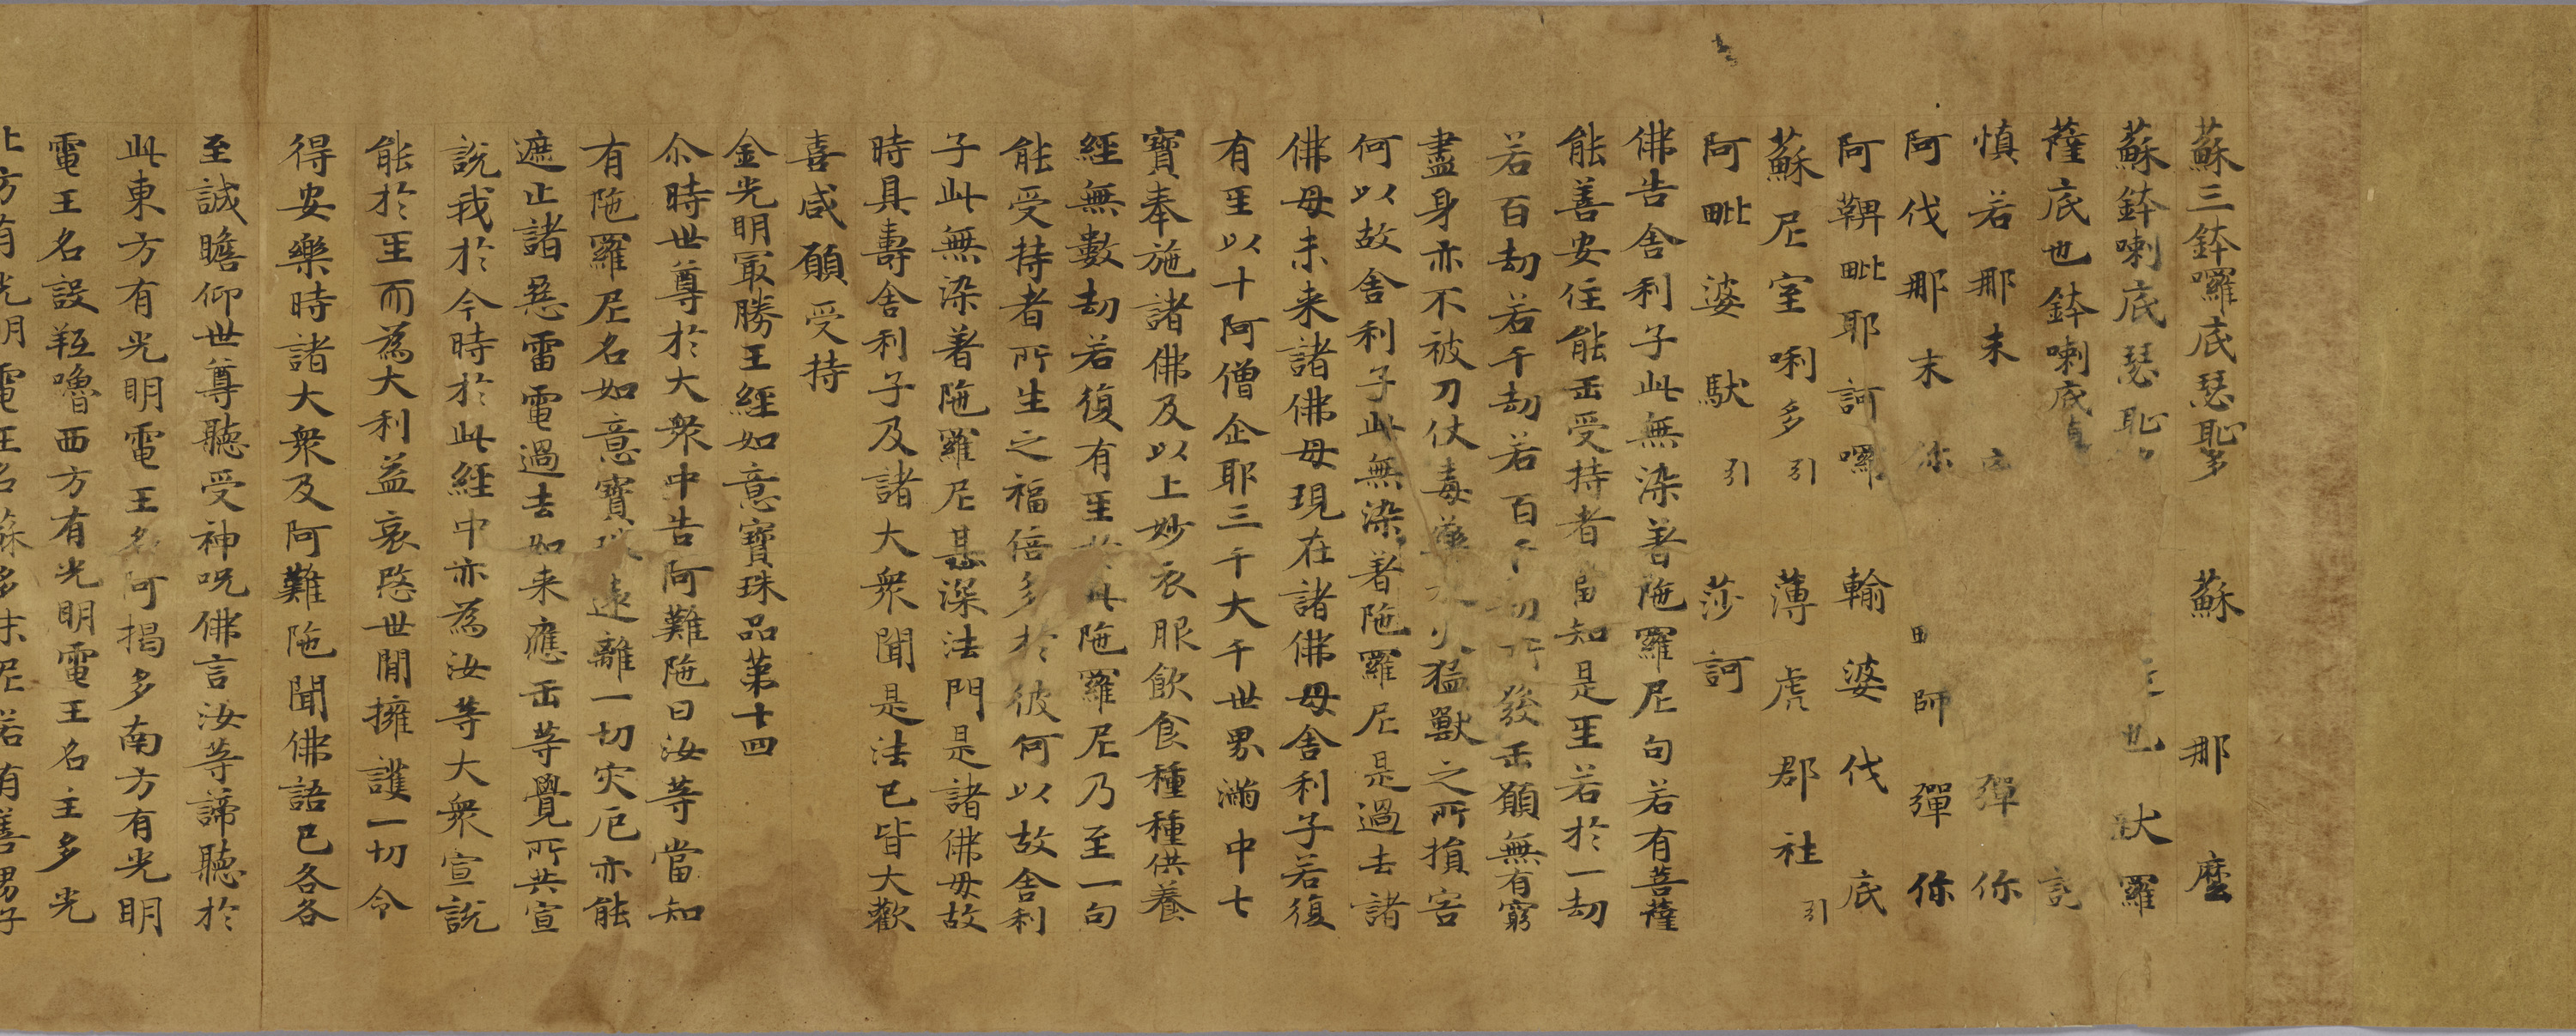 蘇三鉢囉底瑟恥多　蘇那麼
蘇鉢喇底瑟恥　也　狀羅
薩底也鉢喇底
慎若那末　彈你
阿伐那末你　師彈你
阿鞞毗耶訶囉　輸婆伐底
蘇尼室唎多引　薄虎郡社引
阿毗婆馱引　莎訶
佛告舍利子此無染著陁羅尼句若有菩薩
能善安住能𠙺受持者當知是𤯔若於一劫
若百劫若千劫若百千劫所發𠙺願無有窮
盡身亦不被刀仗毒藥水火猛獸之所損害
何以故舍利子此無染著陁羅尼是過去諸
佛母未来諸佛母現在諸佛母舍利子若復
有𤯔以十阿僧企耶三千大千世界滿中七
寶奉施諸佛及以上妙衣服飲食種種供養
經無數劫若復有𤯔於此陁羅尼乃至一句
能受持者所生之福倍多於彼何以故舍利
子此無染著陁羅尼甚深法門是諸佛母故
時具壽舍利子及諸大衆聞是法已皆大歡
喜咸願受持
金光明㝡勝王經如意寶珠品第十四
尒時世尊於大衆中告阿難陁曰汝等當知
有陁羅尼名如意寶珠遠離一切灾厄亦能
遮止諸惡雷電過去如来應𠙺等覺所共宣
說我於今時於此經中亦為汝等大衆宣說
能於𤯔而為大利益哀愍世間擁護一切令
得安樂時諸大衆及阿難陁聞佛語已各各
至誠瞻仰世尊聽受神呪佛言汝等諦聽於
此東方有光明電王名阿揭多南方有光明
電王名設羝嚕西方有光明電王名主多光
北方有光明電王名蘇多末尼若有善男子